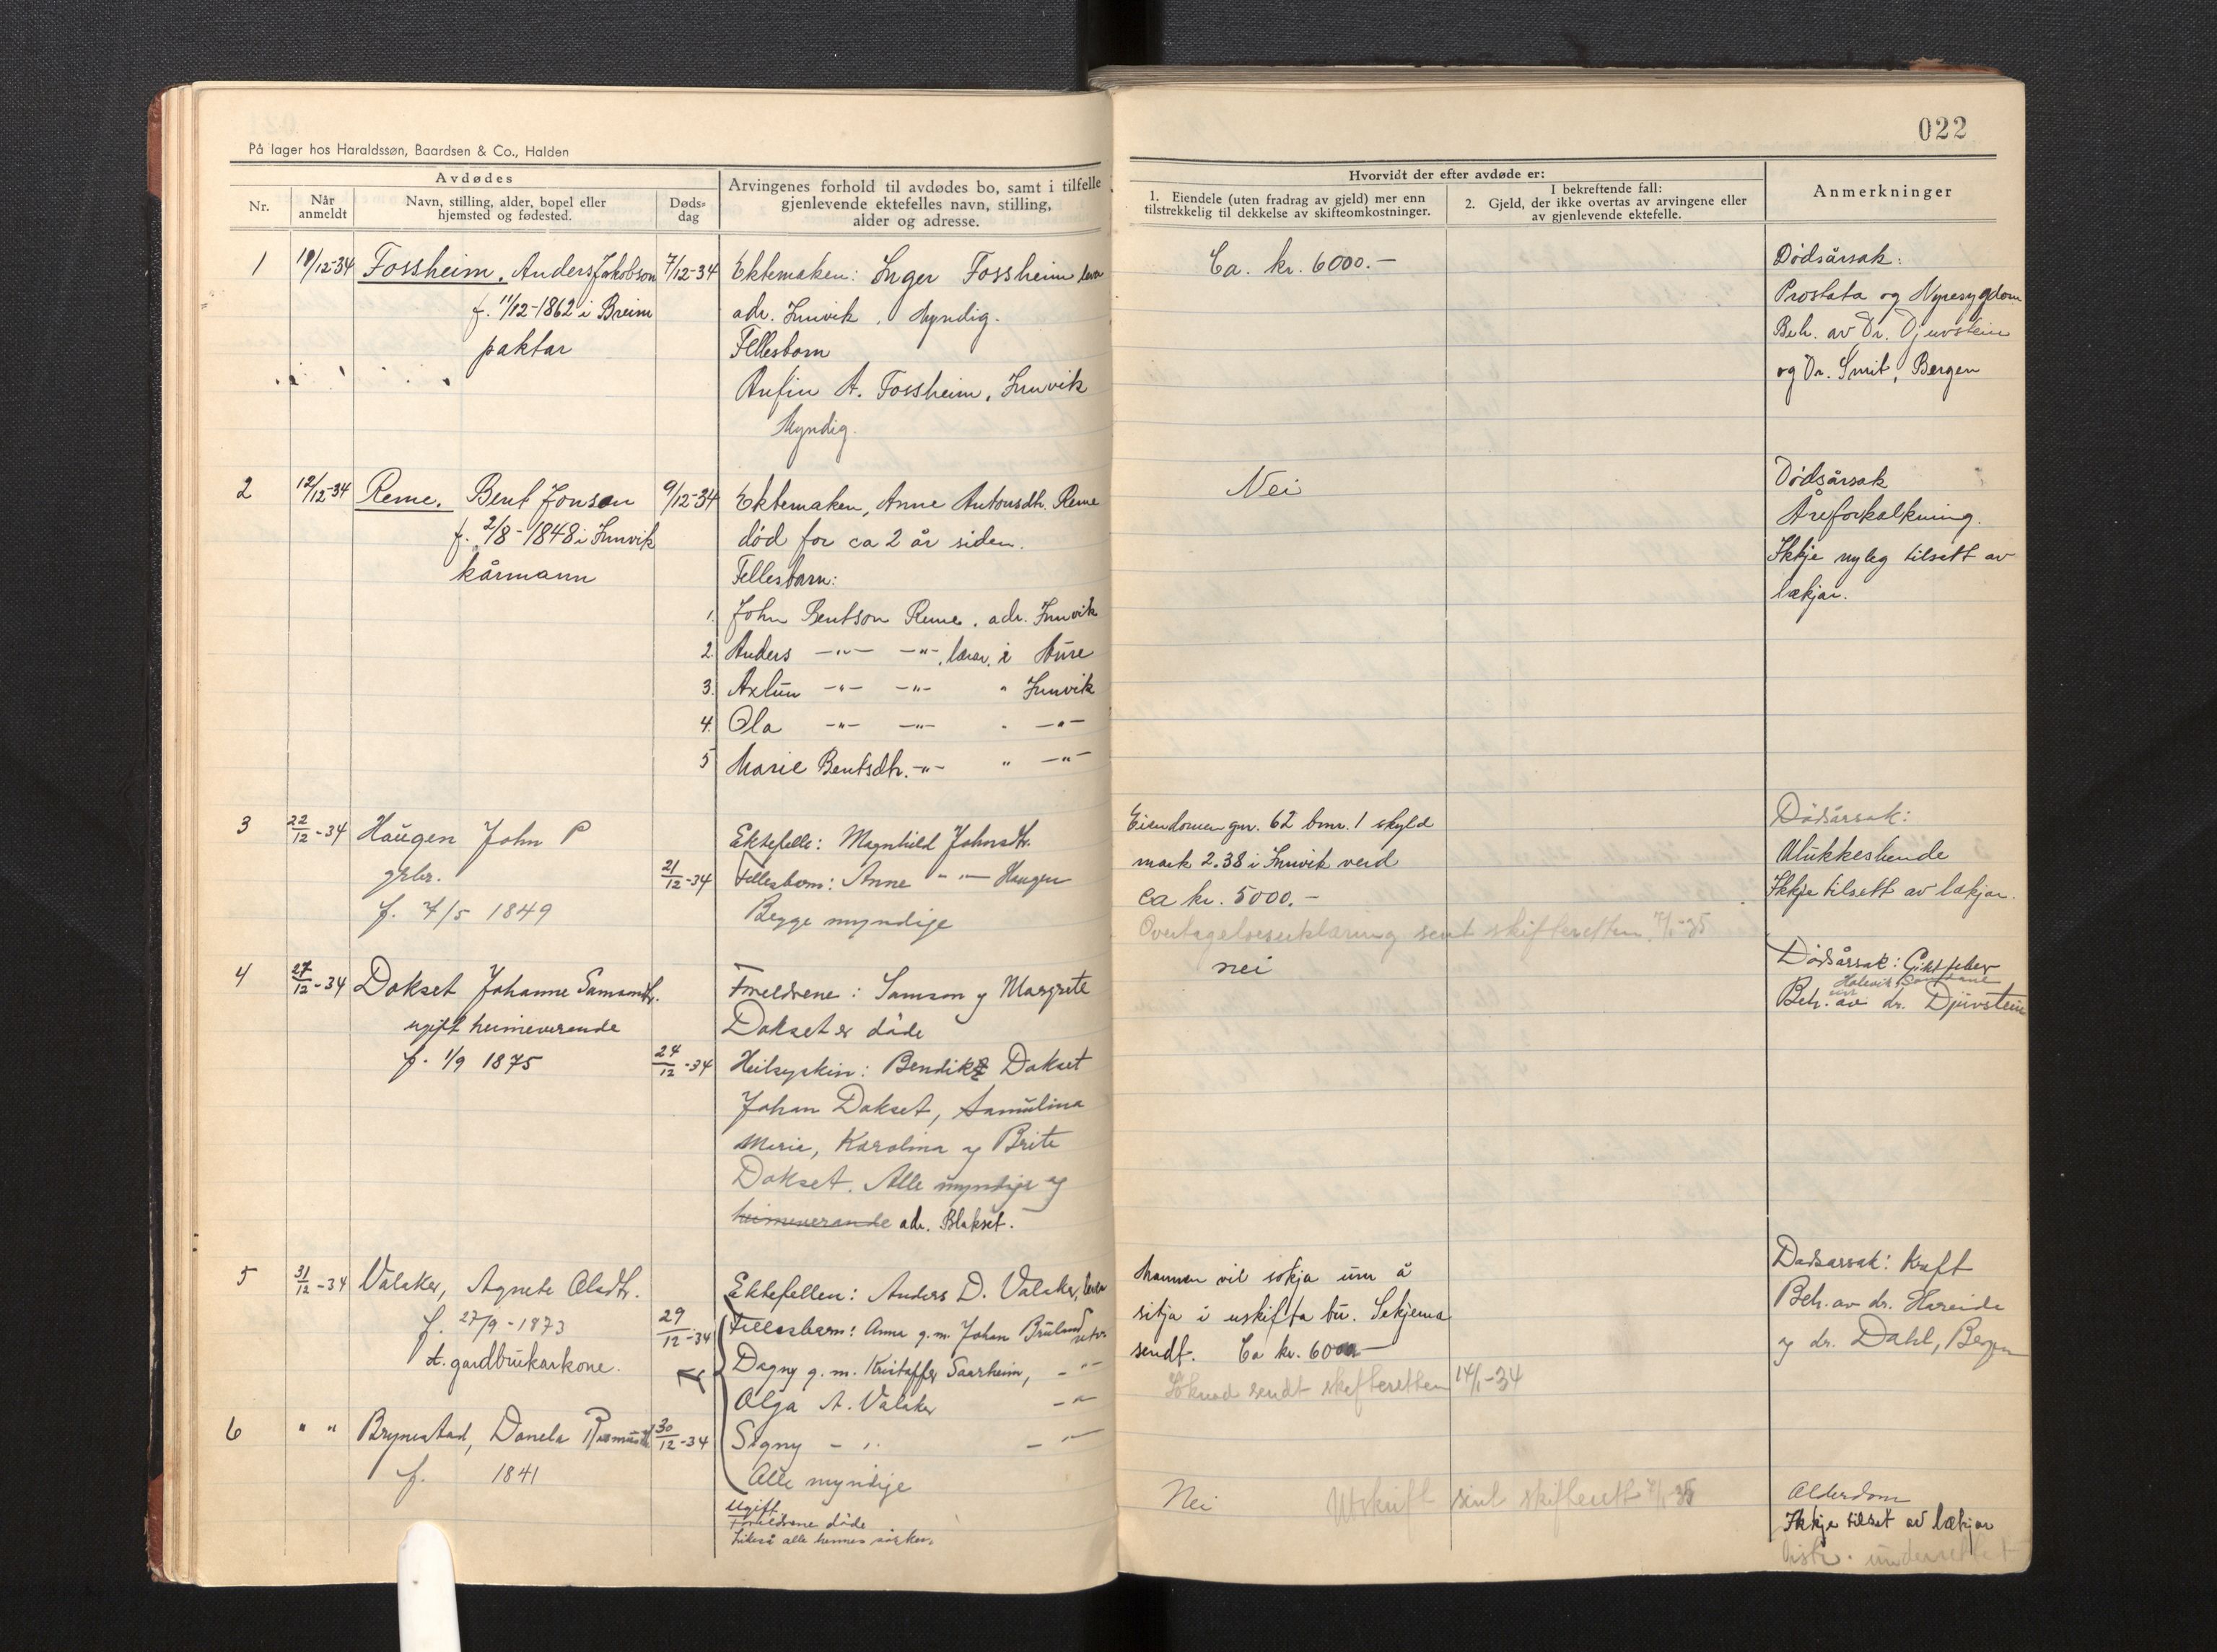 022
På lager hos Haraldssøn, Baardsen & Co., Halden
Avdødes
Nr.
Når anmeldt
Navn, stilling, alder, bopel eller hjemsted og fødested.
Døds-dag
Arvingenes forhold til avdødes bo, samt i tilfelle gjenlevende ektefelles navn, stilling, alder og adresse.
Hvorvidt der efter avdøde er:
1. Eiendele (uten fradrag av gjeld) mer enn tilstrekkelig til dekkelse av skifteomkostninger.
I bekreftende fall:
2. Gjeld, der ikke overtas av arvingene eller av gjenlevende ektefelle.
Anmerkninger
1 10/12-34 Fossheim, Anders Jakobson 7/12-34
f. 11/12-1862 i Breim
paktar
Ektemaken: Inger Fossheim
adr. Innvik. Myndig.
Fellesborn
Anfin A. Fossheim, Innvik
Myndig.
Ca. kr. 6000.-
Dødsårsak:
Prostata og Nyresygdom
Beh. av Dr. Djuvstein
og Dr. Smit, Bergen
2 12/12-34 Reme. Bent Jonson 9/12-34
f. 2/8-1848 i Innvik
kårmann
Ektemaken, Anne Antonsdtr. Reme
død for ca 2 år siden.
Fellesbarn:
1. John Bentson Reme, adr. Innvik
2. Anders -"- -"-, lærar, i Aure
3. Axlun -"- -"- " Innvik
4. Ola -"- -"- " -"-
5 Marie Bentsdtr. -"- " -"-
Nei
Dødsårsak
Åreforkalkning.
Ikkje nyleg tilsett av
lækjar.
3 22/12-34 Haugen John P
gbr.
f. 7/5 1849
21/12-34
Ektefelle: Magnhild Johnsdtr.
Fellesborn: Anne -"- Haugen
Begge myndige
Eiendomen gnr. 62 bnr. 1 skyld
mark 2.38 i Innvik verd
ca kr. 5000.-
Overtagelseserklæring sent skifteretten 7/1-35
Dødsårsak:
Ulukkeshende
Ikkje tilsett av lækjar.
4 27/12-34 Dokset Johanne Samsondtr.
ugift heimeverende
f. 1/9 1875
24/12-34
Foreldrene: Samson og Margrete
Dokset er døde
Heilsyskin: Bendik Dokset
Johan Dokset, Samulina
Marie, Karolina og Brite
Dokset. Alle myndige og
heimeverande adr. Blakset.
nei
Dødsårsak: Giktfeber
Beh. av dr. Djuvstein
5 31/12-34 Valaker, Agnete Olsdtr.
f. 27/9-1873
gardbrukarkone.
29/12-34
Ektefellen: Anders D. Valaker,
Fellesbarn: Anna g.m. Johan Bruland
Dagny g.m. Kristoffer Saarheim, -"-
Olga A. Valaker -"-
Signy -"- -"-
Alle myndige
Mannen vil søkja um å
sitja i uskifta bu. Skjema
sendt. Ca kr. 6000-
Søknad sendt skifteretten 14/1-34
Dødsarsak: Kreft
Beh. av dr. Hareide
og dr. Dahl, Bergen
6 " " Brynestad, Danela Rasmusdtr. 30/12-34
f. 1841
Ugift
Foreldrene døde
Likeså alle hennes sösken.
Nei
Utskrift sent skifterett 7/1-35
Alderdom
Ikkje tilset av lækjar
underrettet